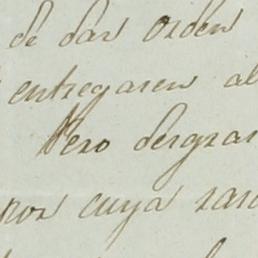 de dar orden
entregaren al
Pero desgra
por cuya raz